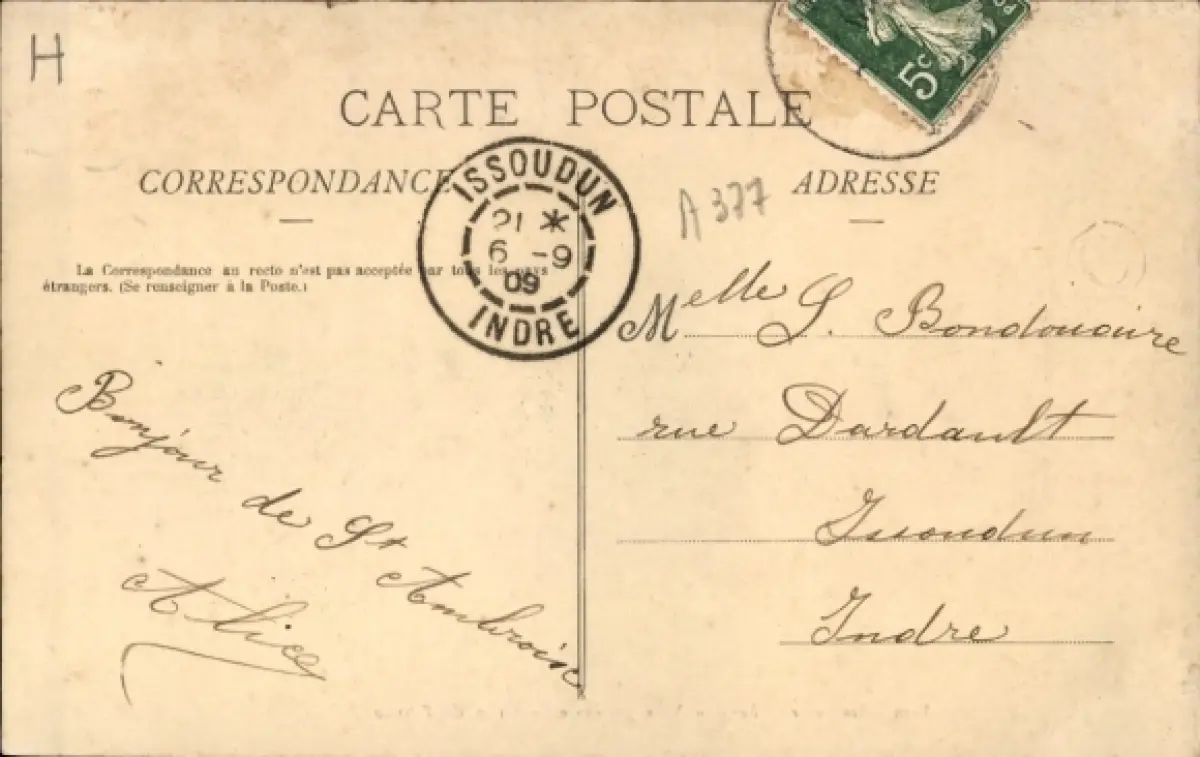 H
5c
PO
CARTE POSTALE
CORRESPONDANCE
ADRESSE
ISSOUDUN
21 *
6 -9
09
INDRE
A 377
La Correspondance au recto n'est pas acceptée par tous les pays
étrangers. (Se renseigner à la Poste.)
Melle S. Bondouaire
rue Dardault
Issoudun
Indre
Bonjour de St Ambroise
Alice